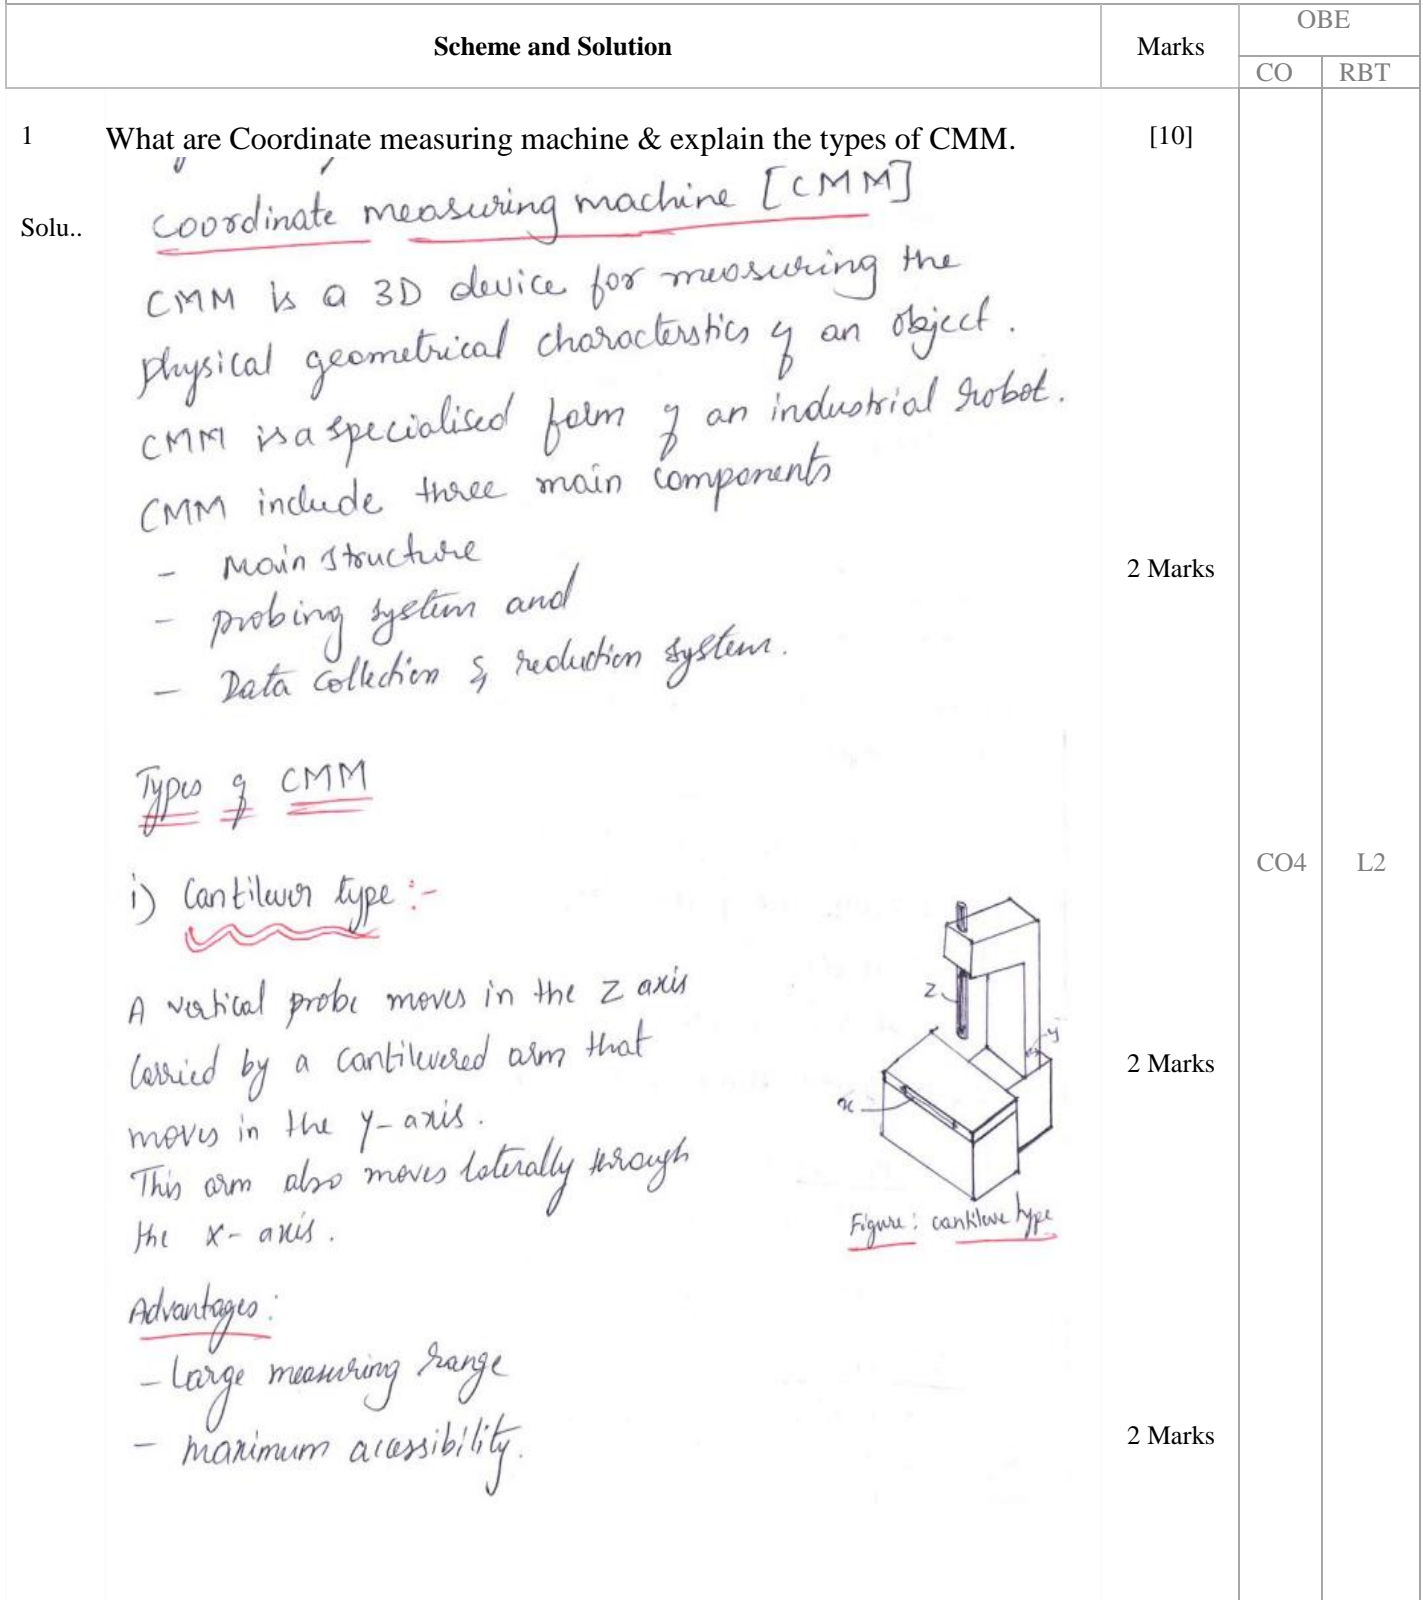 Scheme and Solution
Marks
OBE
CO
RBT
1
What are Coordinate measuring machine & explain the types of CMM.
[10]
Solu..
Coordinate measuring machine [CMM]
CMM is a 3D device for measuring the
physical geometrical characterstics of an object.
CMM is a specialised form of an industrial robot.
CMM include three main components
- Main structure
- probing system and
- Data collection & reduction system.
2 Marks
Types of CMM
i) Cantilever type :-
CO4
L2
A vertical probe moves in the Z axis
Carried by a cantilevered arm that
moves in the Y-axis.
This arm also moves laterally through
the X-axis.
Z
y
x
Figure: cantileve type
2 Marks
Advantages:
- Large measuring range
- maximum acessibility.
2 Marks